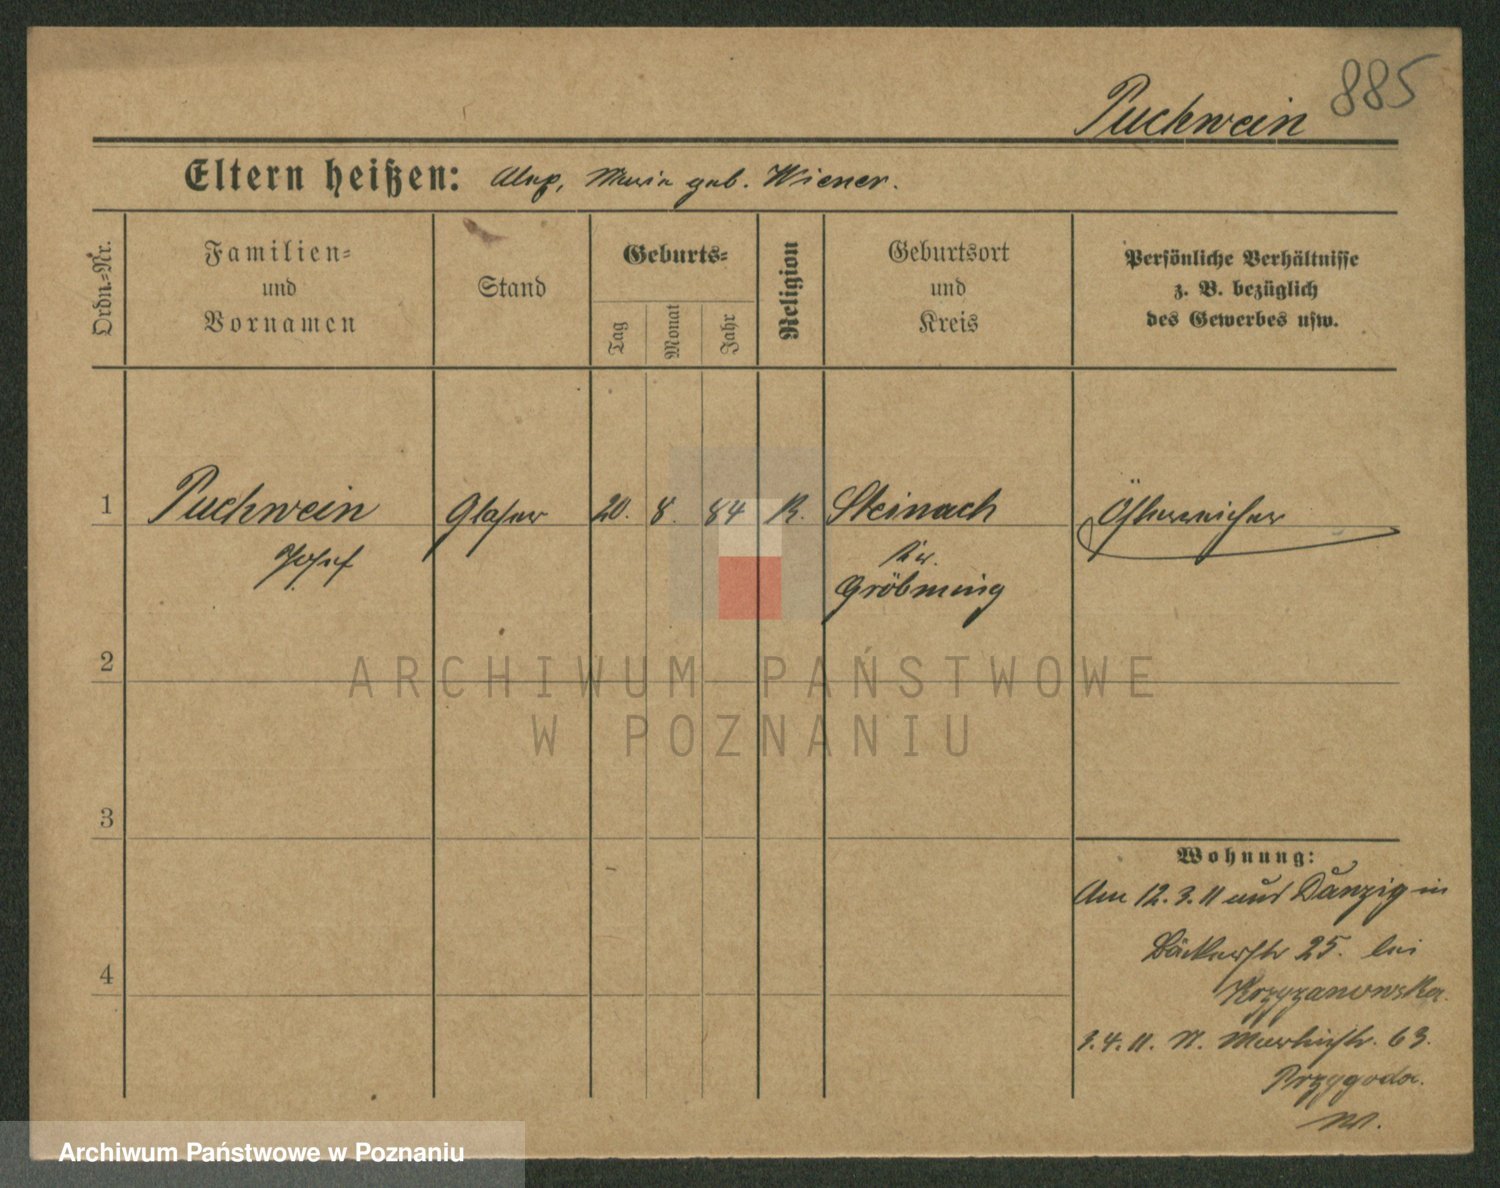 885
Puchwein
Eltern heißen: Alex, Maria geb. Wiener.
Ordn.-Nr.
Familien-
und
Vornamen
Stand
Geburts-
Tag
Monat
Jahr
Religion
Geburtsort
und
Kreis
Persönliche Verhältnisse
z. B. bezüglich
des Gewerbes usw.
1 Puchwein Glaser 20. 8. 84 R. Steinach Österreicher
Josef
Gröbming
2
3
4
Wohnung:
Am 12.3.11 aus Danzig in
Bäckerstr 25. bei
Krzyzanowska.
3.4.11. N. Martinstr. 63.
Przygoda.
ARCHIWUM PAŃSTWOWE
W POZNANIU
Archiwum Państwowe w Poznaniu